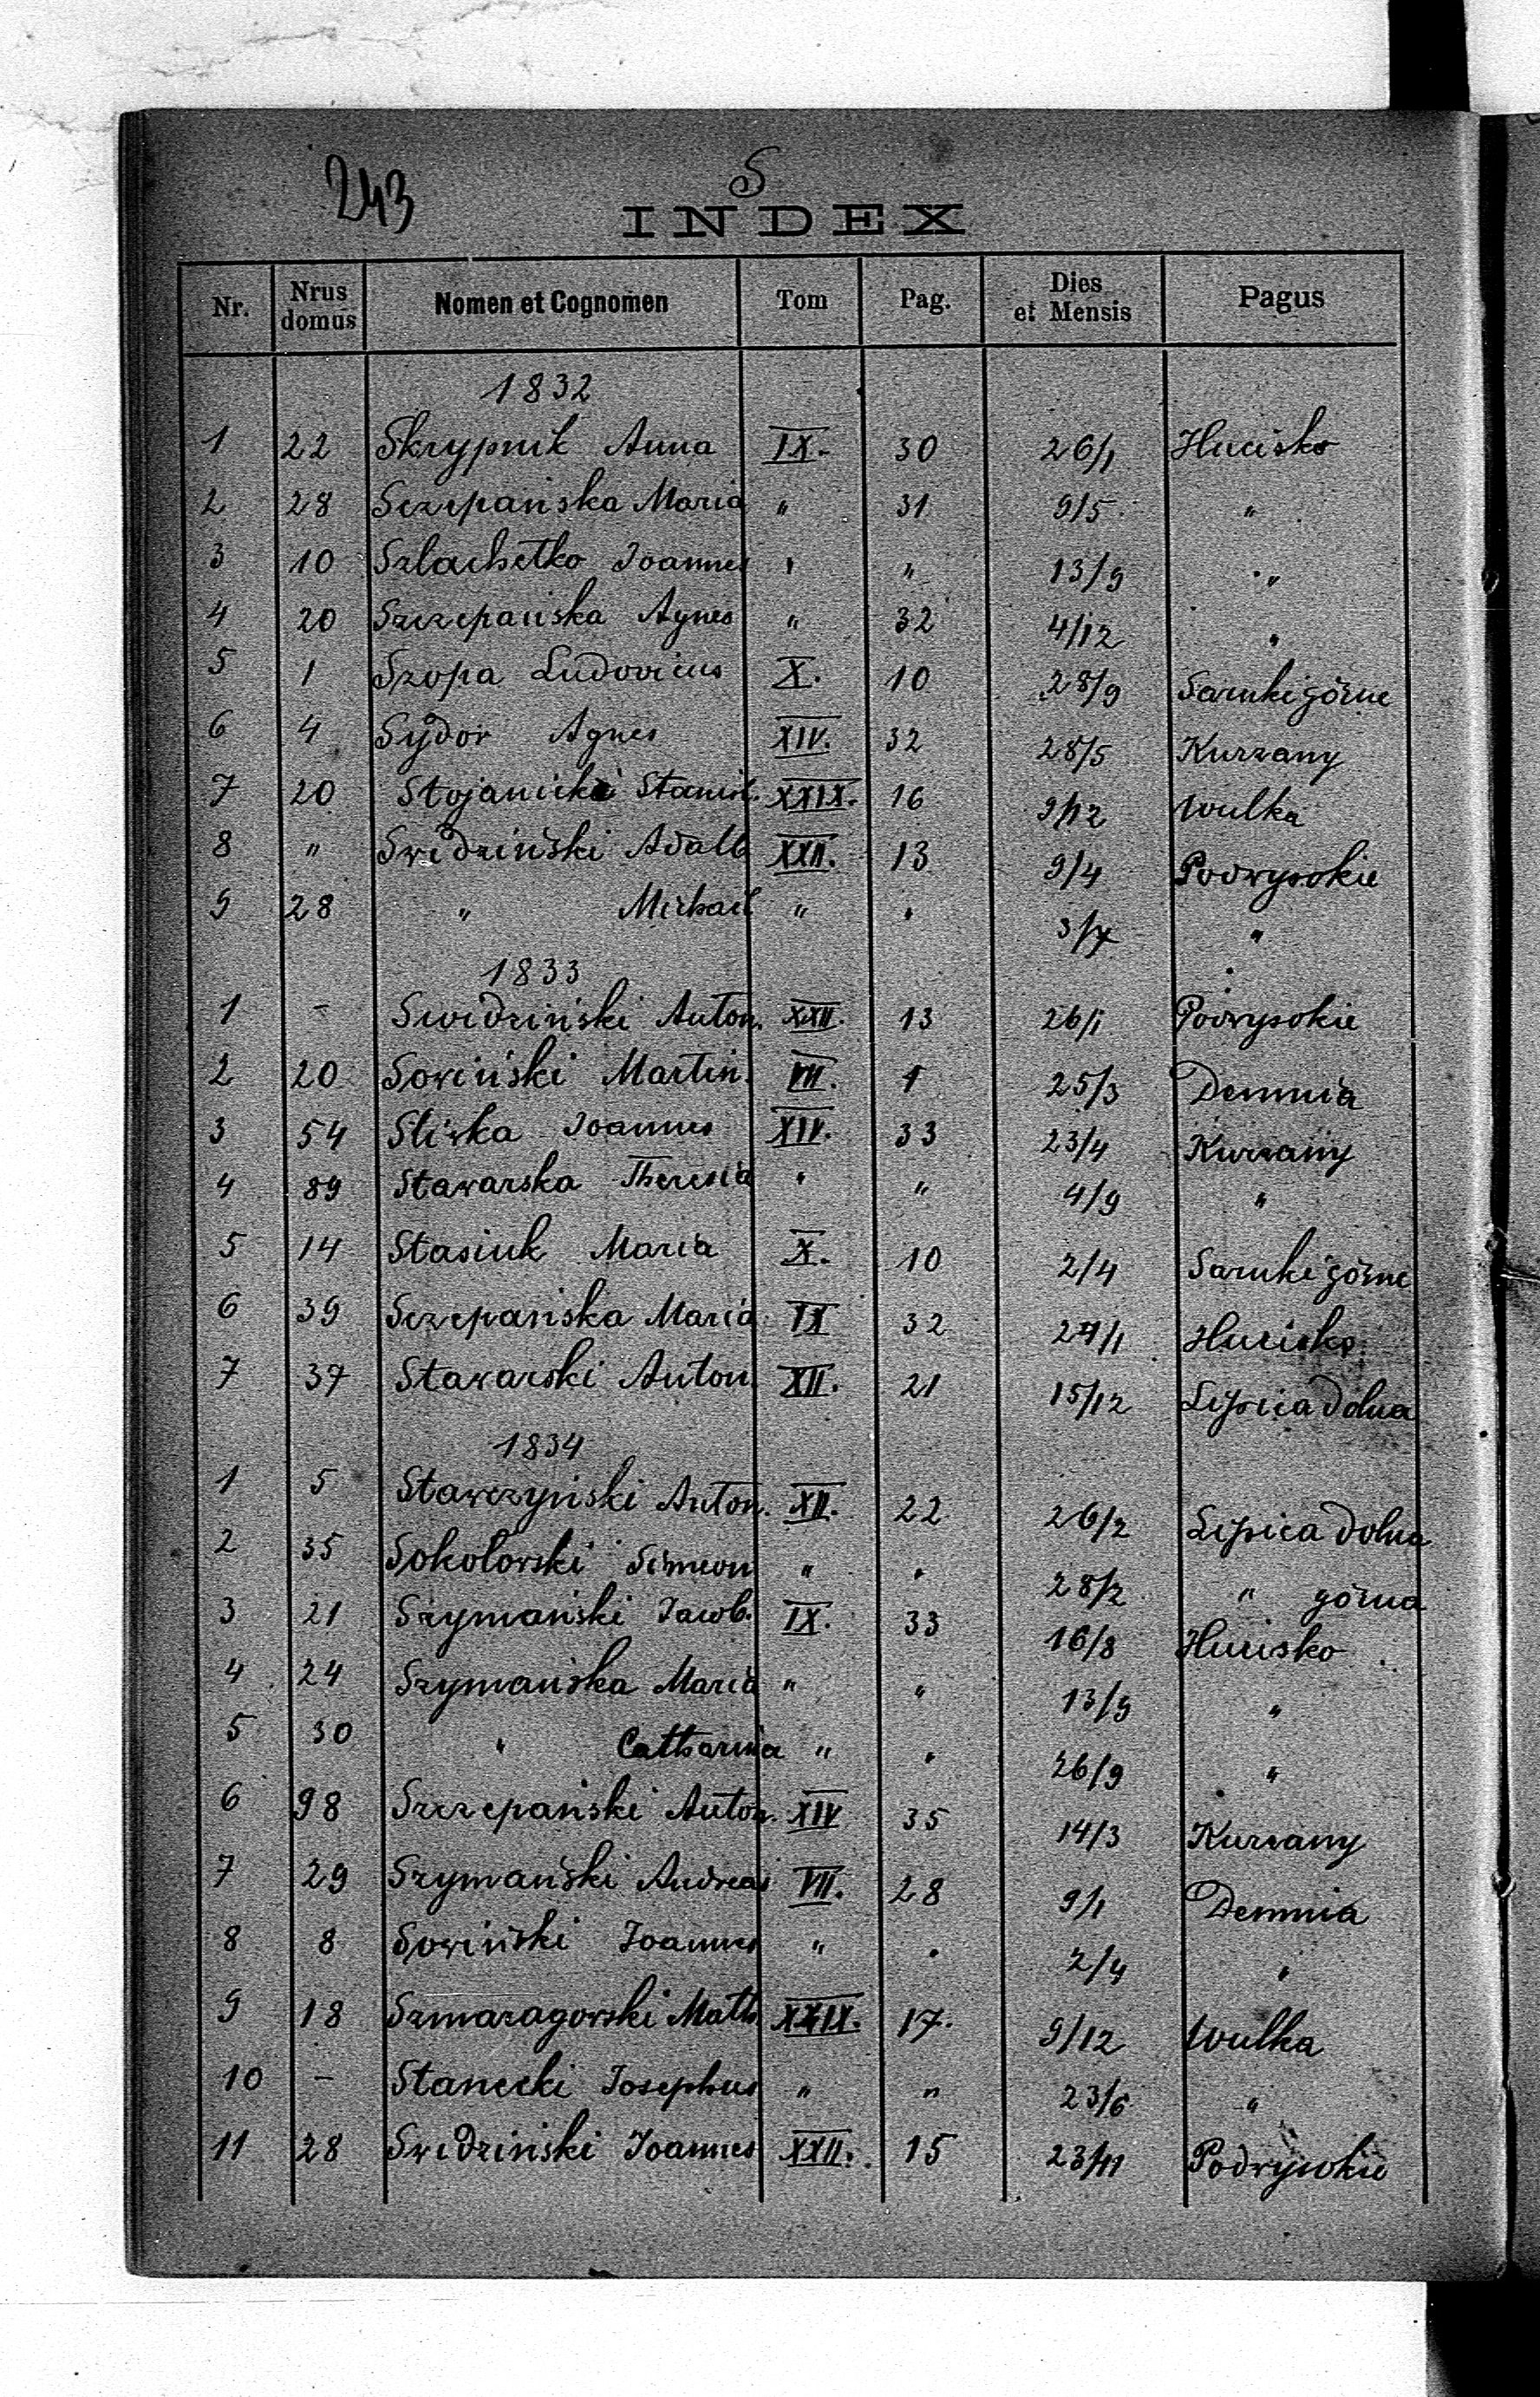 243
S
INDEX
Nr. Nrus domus Nomen et Cognomen Tom Pag. Dies et Mensis Pagus
1832
1 22 Skrypnik Anna IX. 30 26/1 Hucisko
2 28 Sczepańska Maria " 31 9/5 "
3 10 Szlachetko Joannes " " 13/9 "
4 20 Szczepańska Agnes " 32 4/12 "
5 1 Szopa Ludovicus X. 10 28/9 Sarnki górne
6 4 Sydor Agnes XIV. 32 28/5 Kurzany
7 20 Stojanicki Stanisl. XXIX. 16 9/12 Wulka
8 " Swidziński Adalb XXII. 13 9/4 Podwysokie
9 28 " Michael " " 3/7 "
1833
1 - Swidziński Anton. XXII. 13 26/1 Podwysokie
2 20 Sowiński Martin. VII. 1 25/3 Demnia
3 54 Sliwka Joannes XIV. 33 23/4 Kurzany
4 89 Stawarska Theresia " " 4/9 "
5 14 Stasiuk Maria X. 10 2/4 Sarnki górne
6 39 Sczepańska Maria IX 32 27/1 Hucisko
7 37 Stawarski Anton XII. 21 15/12 Lipica dolna
1834
1 5 Stawczyński Anton. XII. 22 26/2 Lipica dolna
2 35 Sokolowski Simeon " " 28/2 " górna
3 21 Szymański Jacob. IX. 33 16/8 Hucisko
4 24 Szymańska Maria " " 13/9 "
5 30 " Catharina " " 26/9 "
6 98 Szczepański Anton. XIV 35 14/3 Kurzany
7 29 Szymański Andreas VII. 28 9/1 Demnia
8 8 Sowiński Joannes " " 2/4 "
9 18 Szmaragowski Math. XXIX. 17. 9/12 Wulka
10 - Stanecki Josephus " " 23/6 "
11 28 Swidziński Joannes XXII. 15 23/11 Podwysokie